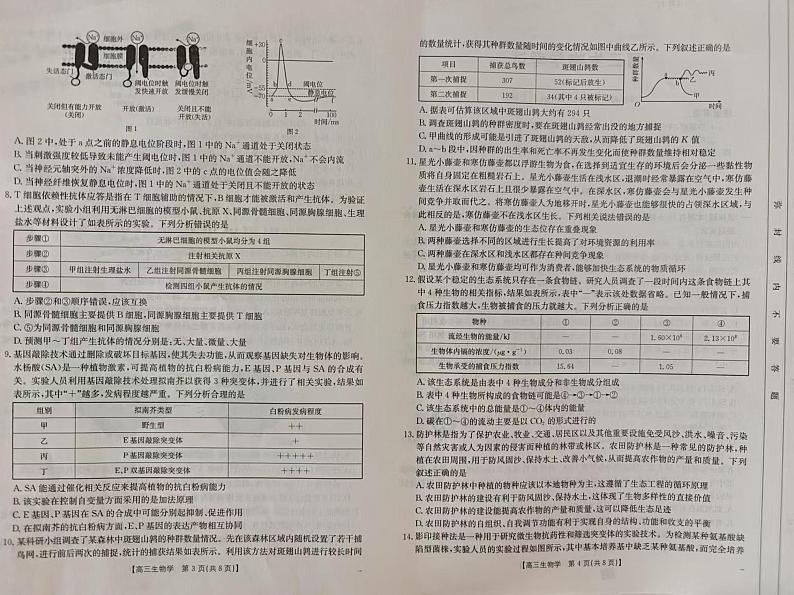 Na⁺
细胞外
Na⁺
Na⁺
细胞膜
失活态门
激活态门
阈电位时触发快速开放
阈电位时触发缓慢关闭
关闭但有能力开放(关闭)
开放(激活)
关闭且不能开放(失活)
图1
细胞内电位/mV
+30
0
-55
-70
a
b
c
d
e
f
阈电位
静息电位
0 1 2 100
时间/ms
图2
A. 图2中,处于a点之前的静息电位阶段时,图1中的Na⁺通道处于关闭状态
B. 当刺激强度较低导致未能产生阈电位时,图1中的Na⁺通道不能开放,Na⁺不会内流
C. 当神经元轴突外的Na⁺浓度降低时,图2中的c点的电位值会随之降低
D. 当神经纤维恢复静息电位时,图1中的Na⁺通道处于关闭且不能开放状态
8. T细胞依赖性抗体应答是指在T细胞辅助的情况下,B细胞才能被激活和产生抗体。为验证
上述观点,实验小组利用无淋巴细胞的模型小鼠、抗原X、同源骨髓细胞、同源胸腺细胞、生理
盐水等材料设计了如表所示的实验。下列分析错误的是
步骤① 无淋巴细胞的模型小鼠均分为4组
步骤② 注射相关抗原X
步骤③ 甲组注射生理盐水 乙组注射同源骨髓细胞 丙组注射同源胸腺细胞 丁组注射⑤
步骤④ 检测四组小鼠产生抗体的情况
A. 步骤②和③顺序错误,应该互换
B. 同源骨髓细胞主要提供B细胞,同源胸腺细胞主要提供T细胞
C. ⑤为同源骨髓细胞和同源胸腺细胞
D. 预测甲~丁组产生抗体的情况分别是无、无、大量、微量、大量
9. 基因敲除技术通过删除或破坏目标基因,使其失去功能,从而观察基因缺失对生物体的影响。
水杨酸(SA)是一种植物激素,可提高植物的抗白粉病能力,E基因、P基因与SA的合成有
关。实验人员利用基因敲除技术处理拟南芥以获得3种突变体,并进行了相关实验,结果如
表所示,其中“+”越多,发病程度越严重。下列分析合理的是
组别 拟南芥类型 白粉病发病程度
甲 野生型 ++
乙 E基因敲除突变体 +
丙 P基因敲除突变体 ++++
丁 E、P双基因敲除突变体 +++++
A. SA能通过催化相关反应来提高植物的抗白粉病能力
B. 该实验在控制自变量方面采用的是加法原理
C. E基因、P基因在SA的合成中可能分别起抑制、促进作用
D. 在拟南芥的抗白粉病方面,E基因敲除突变体的效应强于P基因敲除突变体的
10. 某科研小组调查了某森林中斑翅山鹑的种群数量情况。先在该森林区域内随机设置若干捕
鸟网,进行前后两次的捕捉,统计的捕获结果如表所示。利用该方法对斑翅山鹑进行较长时间
高三生物学 第3页(共8页)
的数量统计,获得其种群数量随时间的变化情况如图中曲线乙所示。下列叙述正确的是
项目 捕获总鸟数 斑翅山鹑数
第一次捕捉 307 52(标记后放生)
第二次捕捉 192 34(其中4只被标记)
种群数量
乙
丙
甲
a
b
O
时间
A. 据表可估算该区域中斑翅山鹑大约有294只
B. 调查斑翅山鹑的种群密度时,要在斑翅山鹑经常出没的地方捕捉
C. 甲曲线的形成可能是引进了斑翅山鹑天敌的缘故,从而降低了斑翅山鹑的K值
D. a~b段中,因种群的出生率和死亡率不再发生变化而使种群数量维持相对稳定
11. 星光小藤壶和寒仿藤壶都以浮游生物为食,在选择到适宜生存的环境后会分泌一些黏性物
质将自身固定在粗糙岩石上。星光小藤壶生活在浅水区,退潮时经常暴露在空气中,寒仿藤
壶生活在深水区岩石上且很少暴露在空气中。在深水区,寒仿藤壶会与星光小藤壶发生种
间竞争并取而代之。将寒仿藤壶人为地移开时,星光小藤壶也能够很快的占领深水区域,与
此相反的是,寒仿藤壶不在浅水区生长。下列相关说法错误的是
A. 星光小藤壶和寒仿藤壶在生态位上存在重叠
B. 两种藤壶选择不同的区域进行生长提高了对环境资源的利用率
C. 两种藤壶在深水区和浅水区都存在种间竞争现象
D. 星光小藤壶和寒仿藤壶作为消费者,能够加快生态系统的物质循环
12. 假设某个稳定的生态系统只存在一条食物链。研究人员调查了一段时间内这条食物链上其
中4种生物的相关指标,结果如表所示,表中“一”表示该处数据省略。已知一般情况下,捕
食压力指数越大,生物被捕食的压力就越大。下列分析正确的是
物种 ① ② ③ ④
流经生物的能量/kJ — — 1.60×10⁶ 2.13×10⁸
生物体内镉的浓度/(μg·g⁻¹) 0.03 0.08 — —
生物承受的捕食压力指数 15.64 — 1.05 —
A. 该生态系统是由表中4种生物成分和非生物成分组成
B. 表中4种生物所构成的食物链可能是④→③→①→②
C. 该生态系统中的总能量是①~④体内的能量
D. 碳在①~④的流动主要是以CO₂的形式进行的
13. 防护林是指为了保护农业、牧业、交通、居民区以及其他重要设施免受风沙、洪水、噪音、污染
等自然灾害或人为因素的侵害而种植的林带或林区。农田防护林是一种常见的防护林,种
植在农田周围,用于防风固沙、保持水土、改善小气候,从而提高农作物的产量和质量。下列
叙述正确的是
A. 农田防护林中种植的物种应该以本地物种为主,以遵循生态工程的循环原理
B. 农田防护林的建设有利于防风固沙、保持水土,这体现了生物多样性的直接价值
C. 农田防护林的建设能提高农作物的产量和质量,这可以降低生态足迹
D. 农田防护林的自组织、自我调节功能有利于实现自身的结构、功能和收支的平衡
14. 影印接种法是一种用于研究微生物抗药性和筛选突变体的实验技术。为检测某种氨基酸缺
陷型菌株,实验人员的实验过程如图所示,其中基本培养基中缺乏某种氨基酸,而完全培养
高三生物学 第4页(共8页)
弥
封
线
内
不
要
答
题